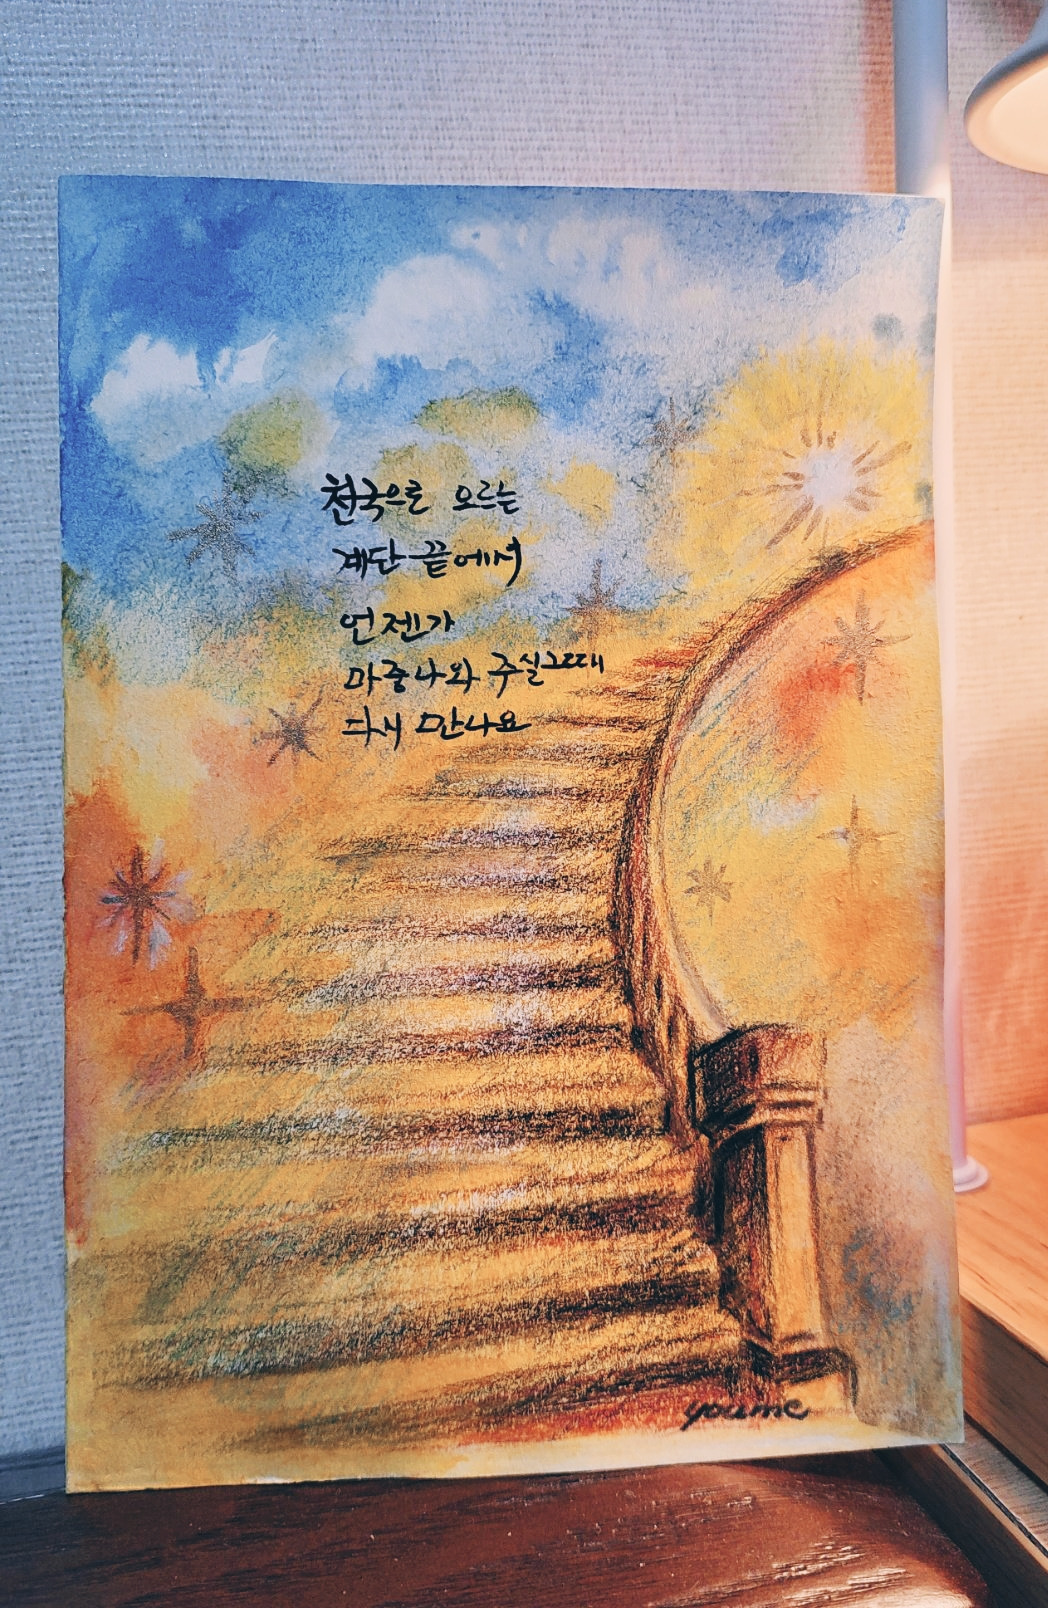 천국으로 오르는
계단 끝에서
언젠가
마중나와 주실그때
다시 만나요
youme